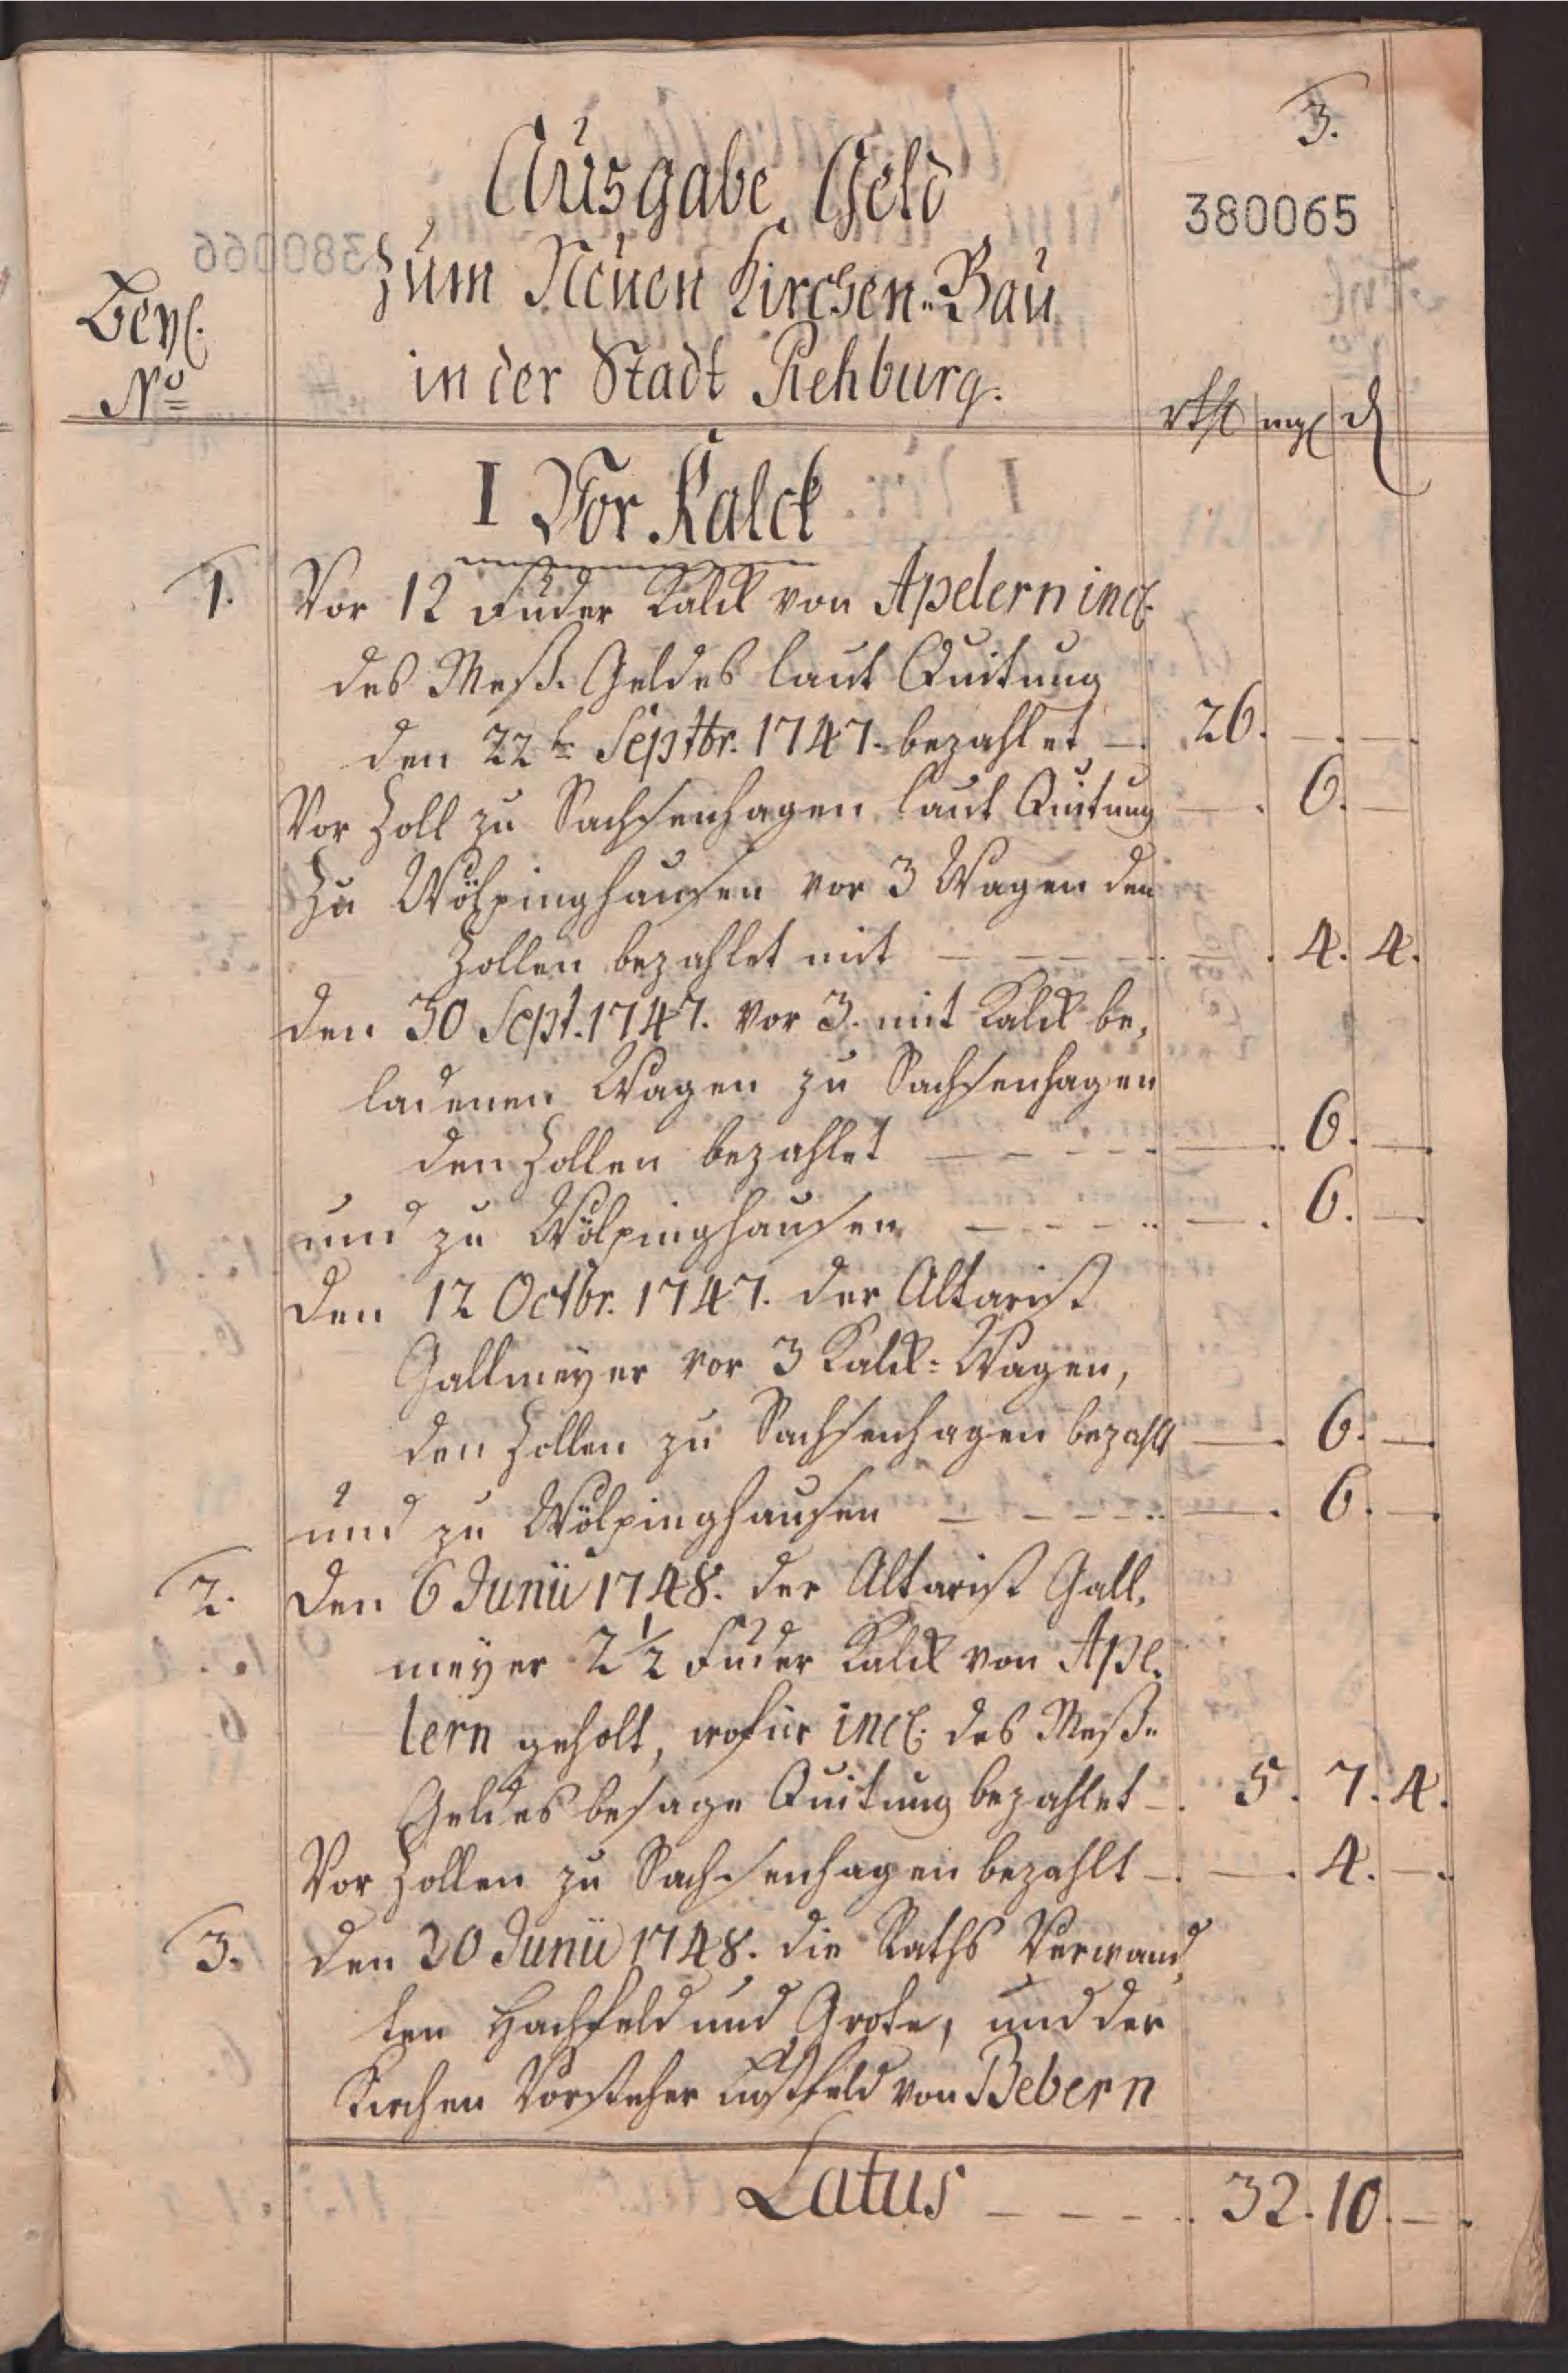 3.
380065
Ausgabe Geld
zum Neuen Kirchen-Bau
in der Stadt Rehburg.
Beyl.
No
rthl mgl d
I Vor Kalck
1. Vor 12 Fuder Kalck von Apelern incl.
des Meß-Geldes laut Quitung
den 22t Septbr. 1747. bezahlet 26. — —
Vor Zoll zu Sachsenhagen laut Quitung — 6. —
Zu Wölpinghausen vor 3 Wagen den
Zollen bezahlet mit — 4. 4.
den 30 Sept. 1747. vor 3. mit Kalck be-
ladenen Wagen zu Sachsenhagen
den Zollen bezahlet — 6. —
und zu Wölpinghausen — 6. —
den 12 Octbr. 1747. der Altarist
Gallmeyer vor 3 Kalck-Wagen,
den Zollen zu Sachsenhagen bezahlt — 6. —
und zu Wölpinghausen — 6. —
2. den 6 Junii 1748. der Altarist Gall-
meyer 2 1/2 Fuder Kalck von Ape-
lern geholt, wofür incl. des Meß-
Geldes besage Quitung bezahlet 5. 7. 4.
Vor Zollen zu Sachsenhagen bezahlt — 4. —
3. den 20 Junii 1748. die Raths Verwand-
ten Hachfeld und Grote, und der
Kirchen Vorsteher Lustfeld von Bebern
Latus 32. 10. —